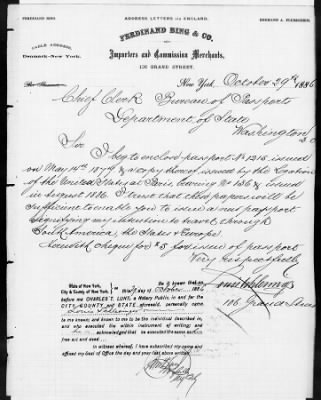 FERDINAND BING
ADDRESS LETTERS VIA ENGLAND.
FERDINAND BING & CO.
CABLE ADDRESS,
Denmark-New York.
Importers and Commission Merchants,
106 GRAND STREET.
New York, October 29th 1886
Chief Clerk Bureau of Passports
Department of State
Washington
Sir I beg to enclose passport No 1215 issued
on May 14th 1874 & a copy thereof issued by the Legation
of the United States at Paris, bearing No 136 & issued
in August 1886. I trust that these papers will be
sufficient to enable you to issue a new passport
signifying my intention to travel through
South America, the States & Europe.
I enclose cheque for $5 for issue of passport
Very respectfully
106 Grand Street
State of New York,
City & County of New York.
Be it known that on
day of October 1886
before me CHARLES T. LUNT, a Notary Public, in and for the
CITY, COUNTY and STATE aforesaid, personally came
to me known and known to me to be the individual described in
and who executed the within instrument of writing; and
he acknowledged that he executed the same as his
free act and deed.
In witness whereof, I have subscribed my name and
affixed my Seal of Office the day and year last above written.